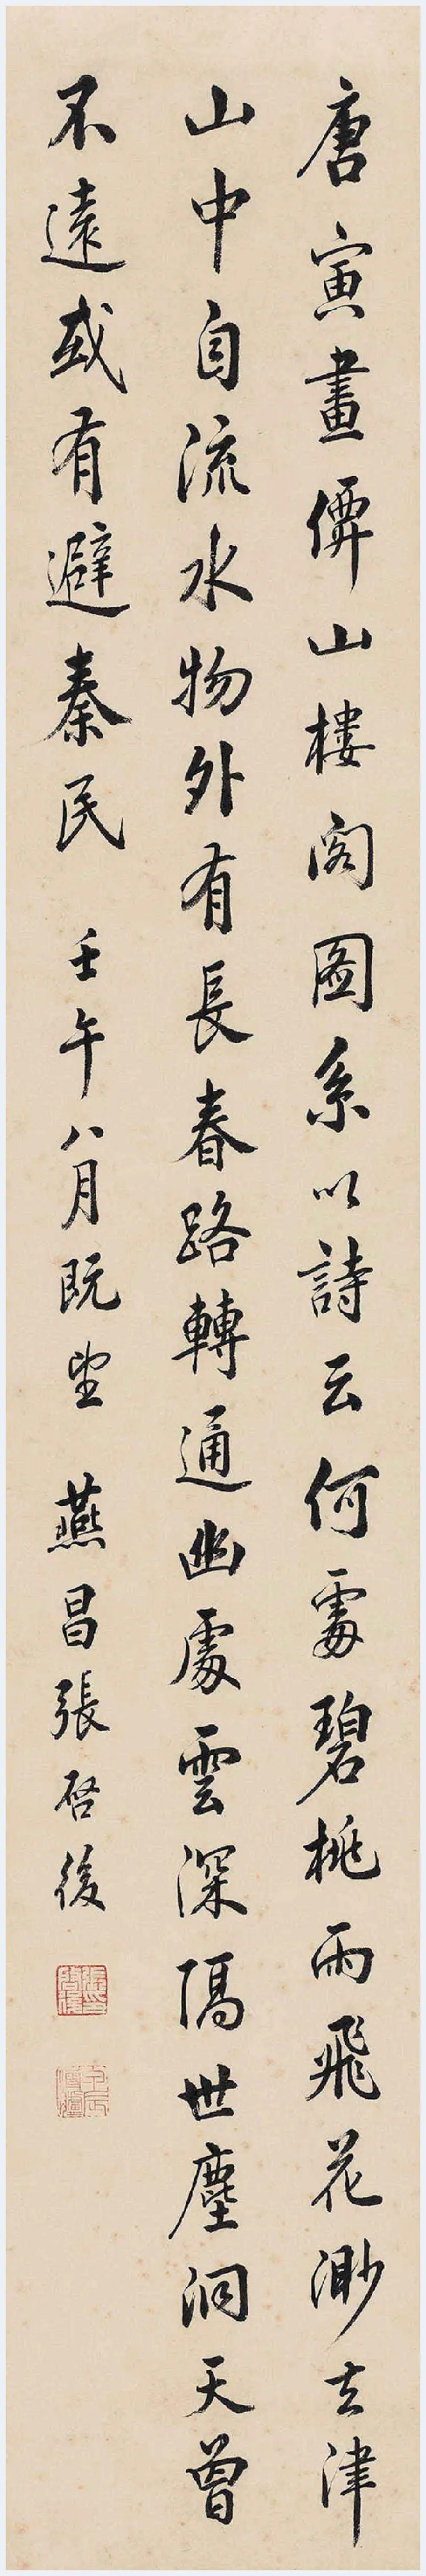 唐寅畫僊山樓閣圖系以詩云何處碧桃雨飛花渺去津
山中自流水物外有長春路轉通幽處雲深隔世塵洞天曾
不遠或有避秦民 壬午八月既望 燕昌張啓後